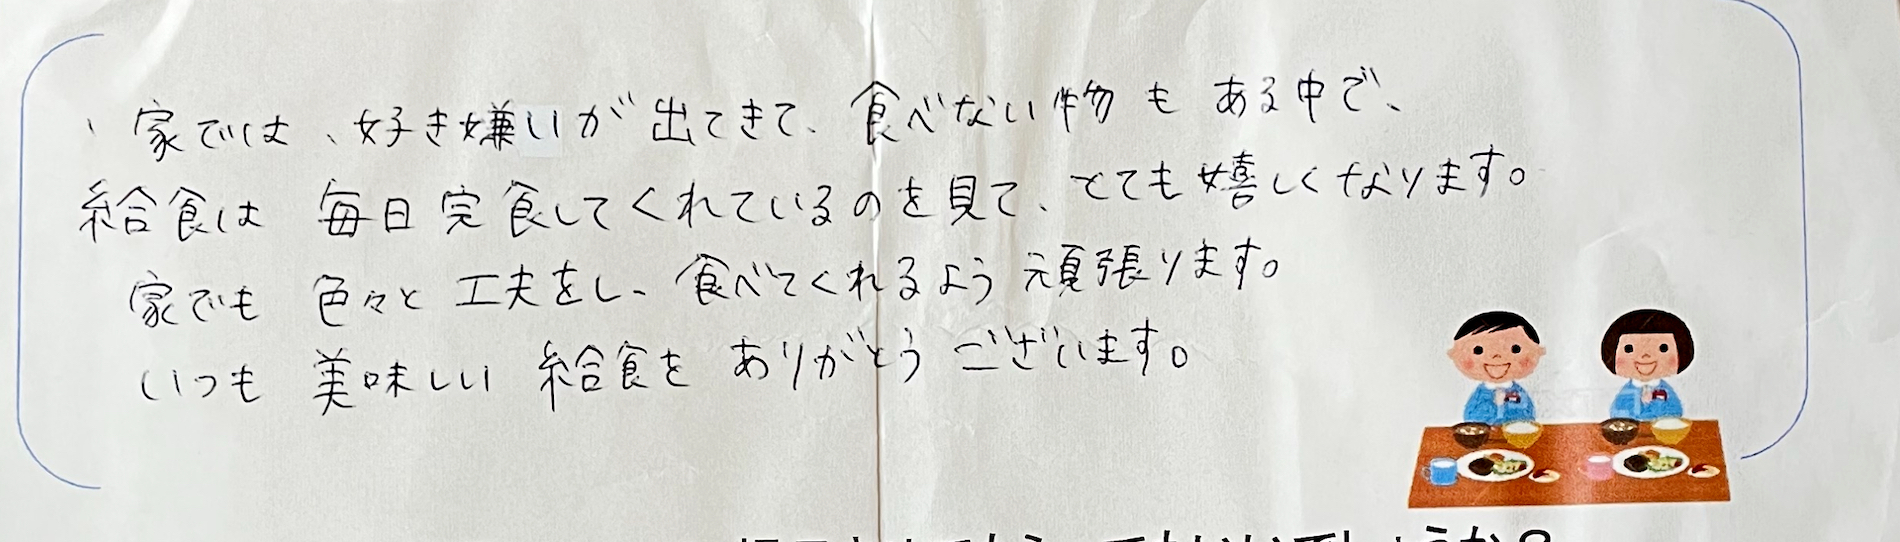 、家では、好き嫌いが出てきて、食べない物もある中で、
給食は毎日完食してくれているのを見て、とても嬉しくなります。
家でも色々と工夫をし、食べてくれるよう頑張ります。
いつも美味しい給食をありがとうございます。